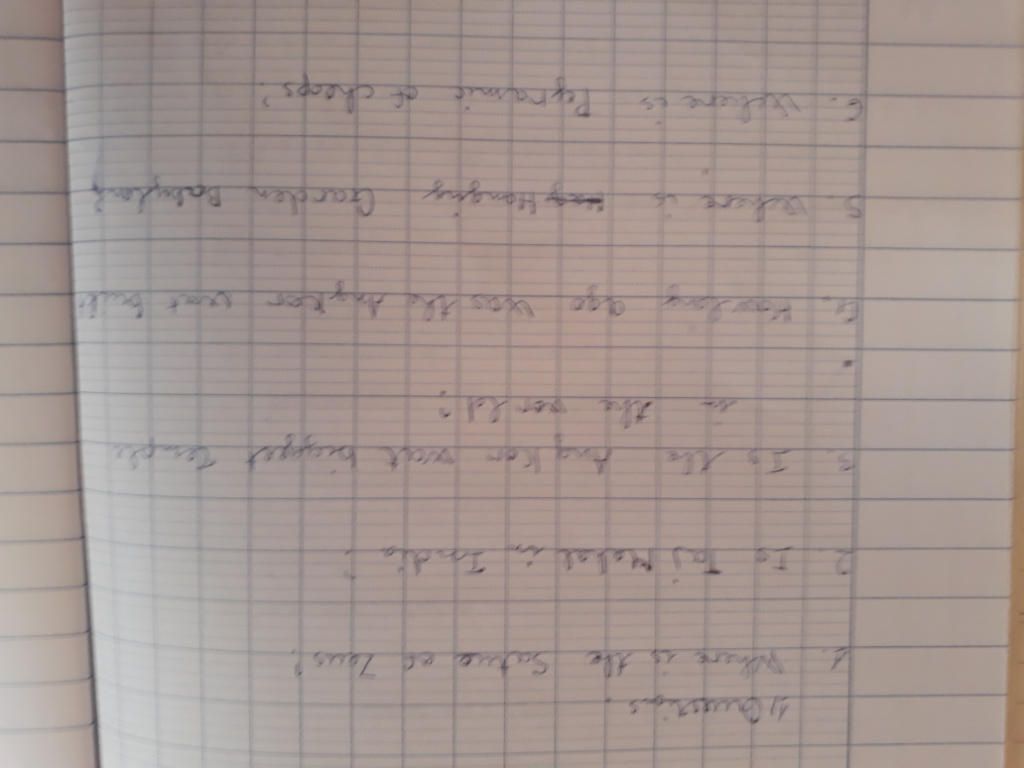 1) Questions.
1. Where is the Satue of Zeus?
2. Is Taj Mahal in India?
3. Is the Ang Kor wat bigget Temple
in the wor ld?
4. How long ago was the Ang Kor wat built
5. Where is Hanging Garden Babylon?
6. Where is Pyramic of cheops?